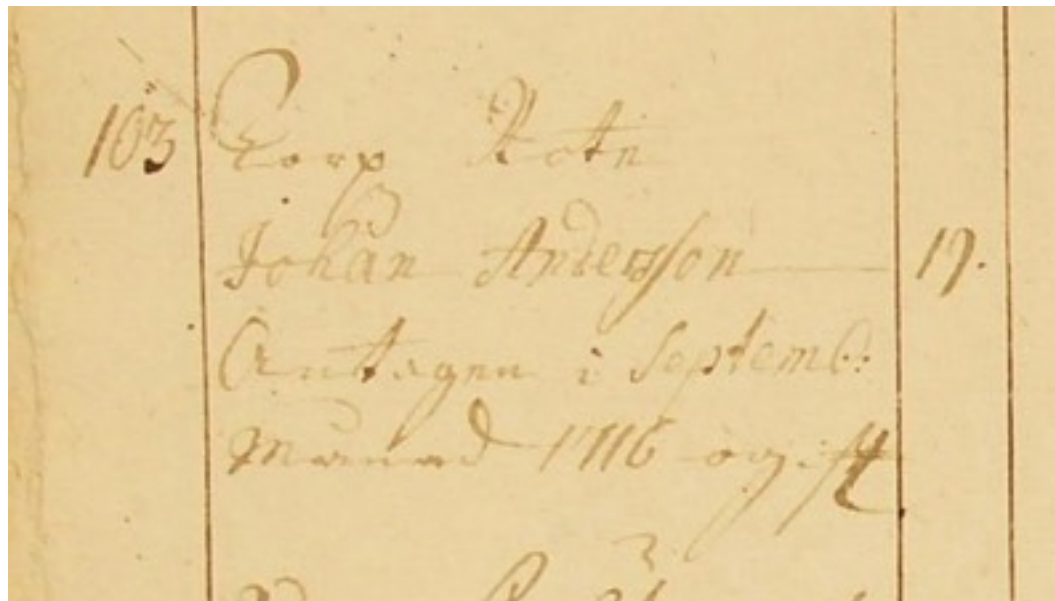 103 Torp Rote
Johan Andersson 19.
Antagen i Septemb:
Månad 1716 ogift